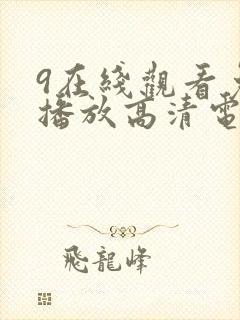 9在綫觀看免
播放高清電
飛龍峰